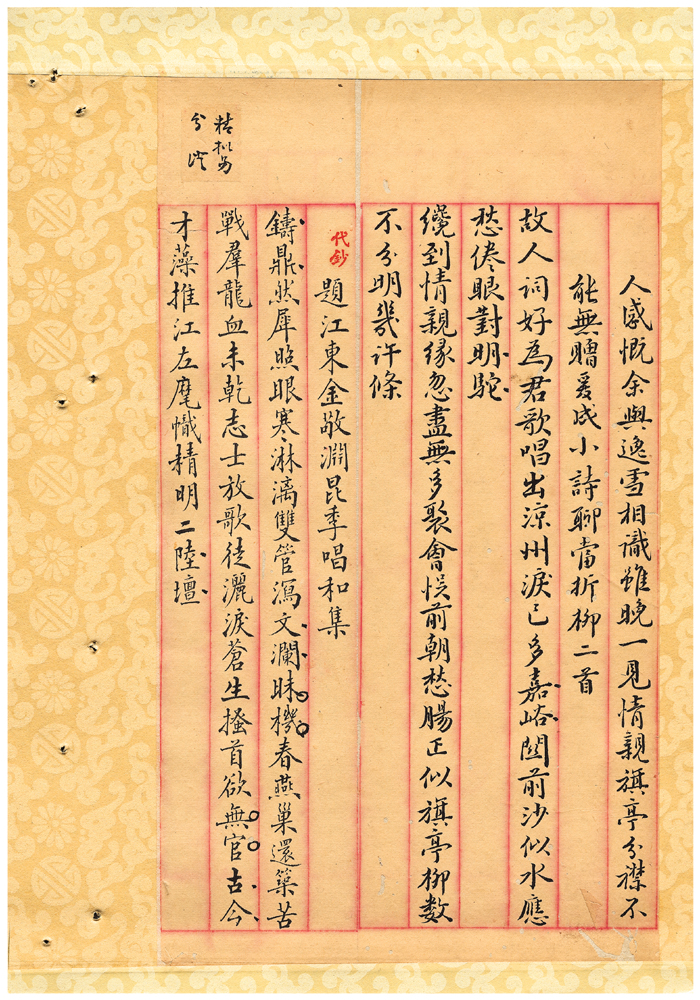 人感慨余與逸雪相識雖晚一見情親旗亭分襟不
能無贈爰成小詩聊當折柳二首
故人詞好為君歌唱出涼州淚已多嘉峪関前沙似水應
愁倦眼對明駝
纔到情親緣忽盡無多聚會悮前朝愁腸正似旗亭柳数
不分明幾許條
代鈔
題江東金敬淵昆季唱和集
鑄鼎然犀照眼寒淋漓雙管瀉文瀾昧機春燕巢還築苦
戰羣龍血未乾志士放歌徒灑淚蒼生搔首欲無官古今
才藻推江左麾幟精明二陸壇